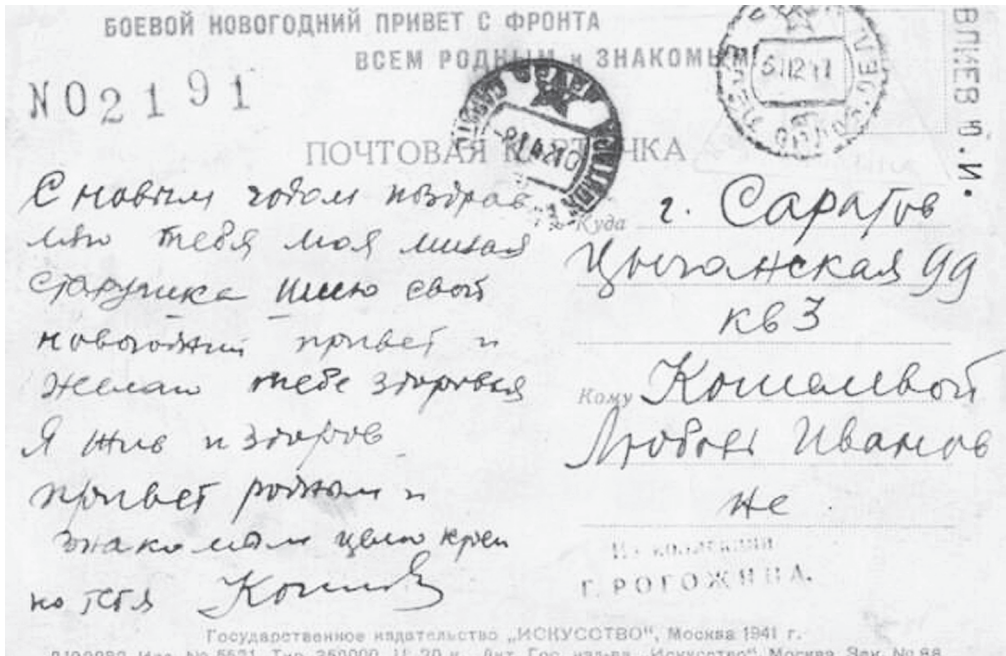 БОЕВОЙ НОВОГОДНИЙ ПРИВЕТ С ФРОНТА
ВСЕМ РОДНЫМ и ЗНАКОМЫМ!
NO2191
ПОЧТОВАЯ КАРТОЧКА
С новым годом поздрав
ляю тебя моя милая
старушка шлю свой
новогодний привет и
желаю тебе здоровья
Я жив и здоров
привет родным и
знакомым целую креп
ко тебя
Куда г. Саратов
Цыганская 99
кв 3
Кому Кошелевой
Любовь Иванов
не
Из коллекции
Г. РОГОЖИНА.
Ю. И.
Государственное издательство „ИСКУССТВО", Москва 1941 г.